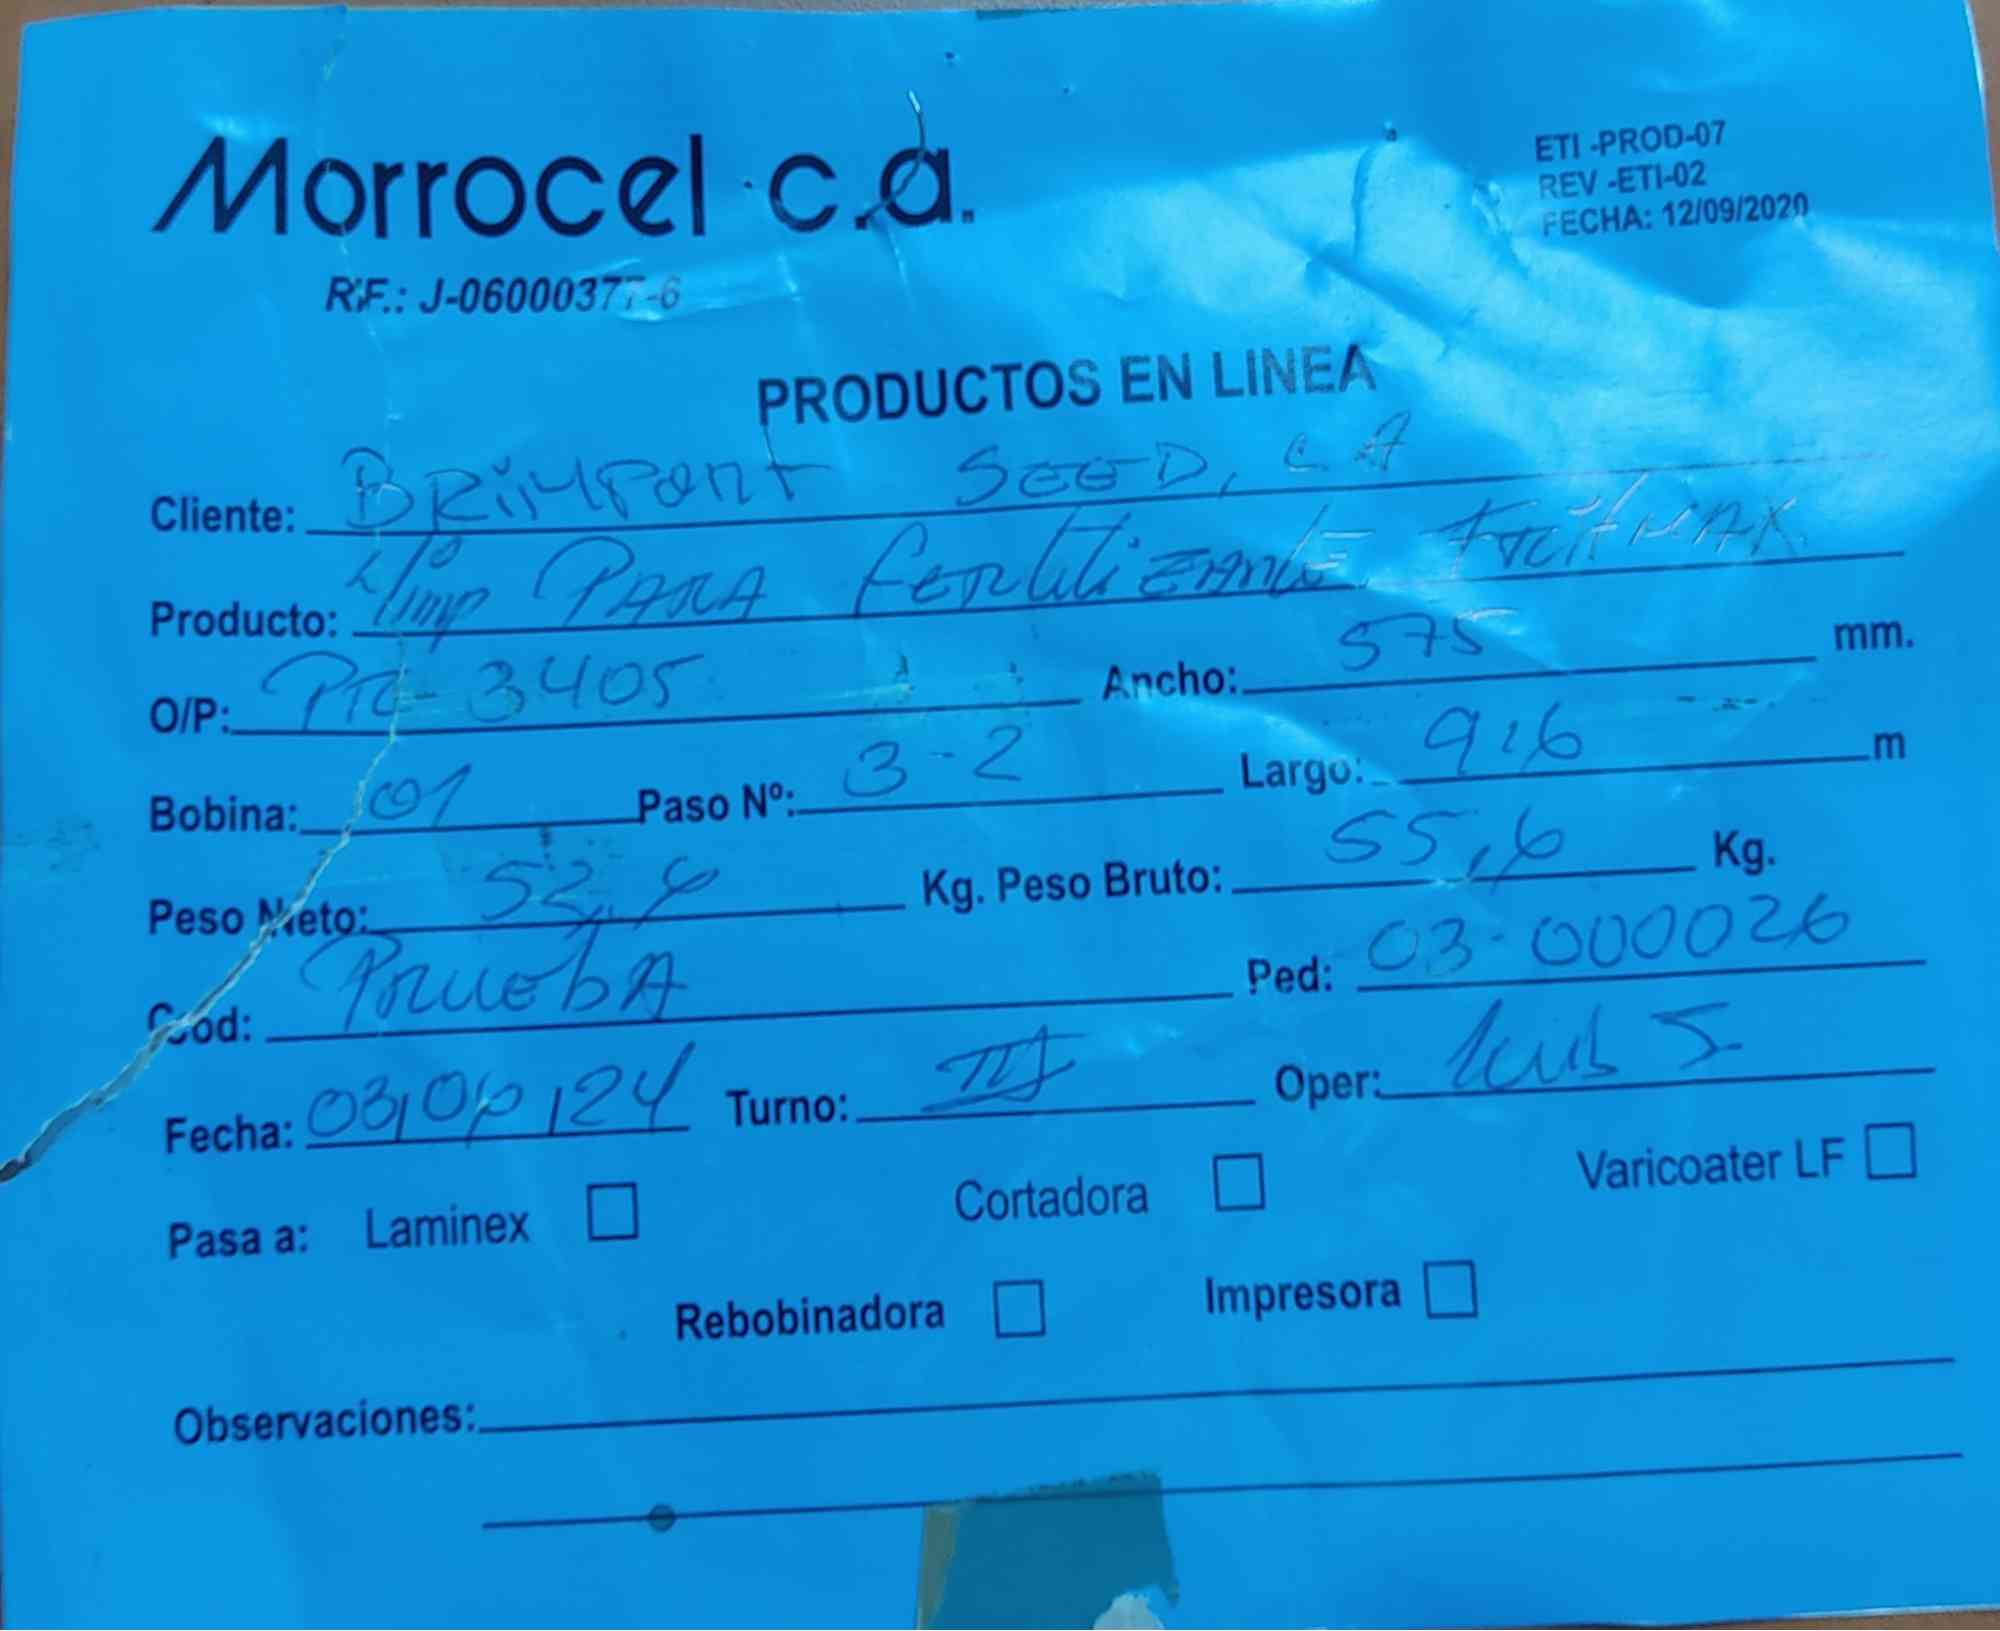 Morrocel c.a.
ETI -PROD-07
REV -ETI-02
FECHA: 12/09/2020
RIF.: J-06000377-6
PRODUCTOS EN LINEA
Cliente: BRiMPORT SEED, C A
Producto: L/imp PARA fertilizante
O/P: PTC-3405 Ancho: 575 mm.
Bobina: 01 Paso Nº: 3-2 Largo: 916 m
Peso Neto: Kg. Peso Bruto: 55,6 Kg.
Cod: PruebA Ped: 03-000026
Fecha: Turno: III Oper: Luis S.
Pasa a: Laminex Cortadora Varicoater LF
Rebobinadora Impresora
Observaciones: